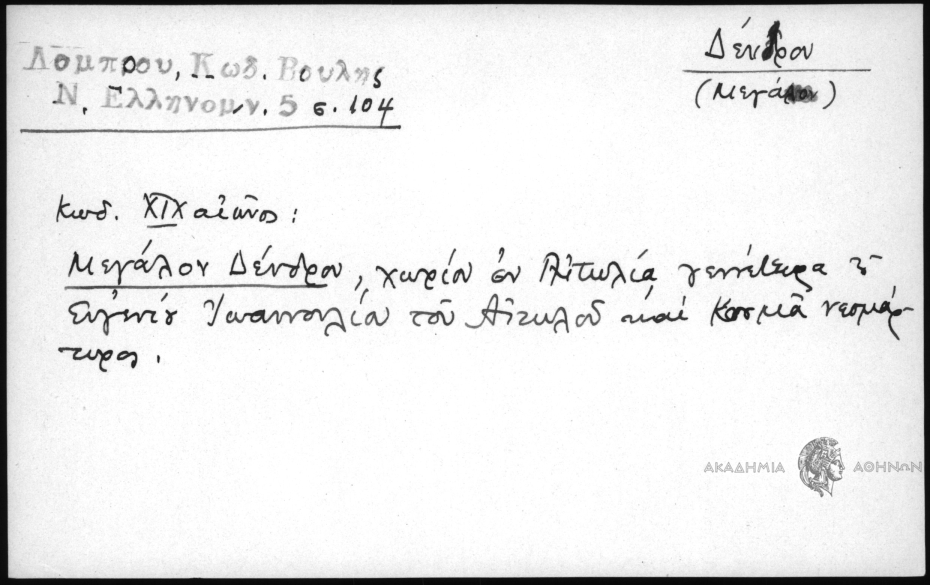 Λάμπρου, Κωδ. Βουλης
Ν. Ελληνομν. 5 σ. 104
Δένδρον
(Μεγάλον)
Κωδ. ΧΙΧ αἰῶνος:
Μεγάλον Δένδρον, χωρίον ἐν Αἰτωλίᾳ γεννέτειρα τοῦ
Εὐγενίου Ἰωαννουλίου τοῦ Αἰτωλοῦ καὶ Κοσμᾶ νεομάρ-
τυρος.
ΑΚΑΔΗΜΙΑ ΑΘΗΝΩΝ